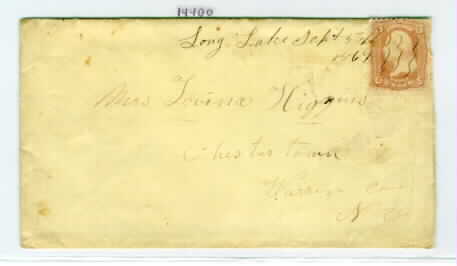 14400
Long Lake Sept 5th
1869
Mrs Lovina Higgins
Chestertown
Warren Co
N Y